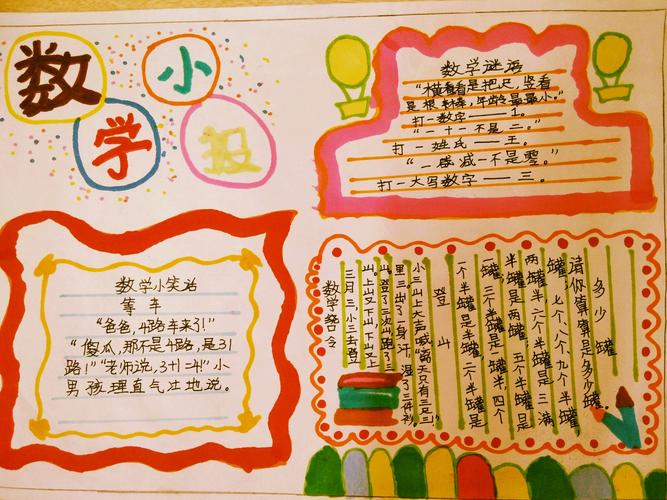 数 小
学 报
数学谜语
“横看看是把尺,竖看
是根棒,年龄最最小。”
打一数字——1。
“一十一不是二。”
打一姓氏——王。
“一减一不是零。”
打一大写数字——三。
数学小笑话
等车
“爸爸,4路车来了!”
“傻瓜,那不是4路,是31
路!”“老师说,3+1=4!”小
男孩理直气壮地说。
数学绕口令
三月三,小三去登
山,上山又下山,下山又上
山,登了三次山,跑了三
里三,出了一身汗,湿了三件衫,
小三山上大声喊“离天只有三尺三!”
登山
一个半罐是半罐,二个半罐是
一罐,三个半罐是罐半,四个
半罐是两罐,五个半罐是
两罐半,六个半罐是三满
罐,七个、八个、九个半罐,
请你算算是多少罐。
多少罐